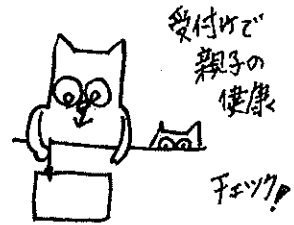 受付けで
親子の
健康
チェック!